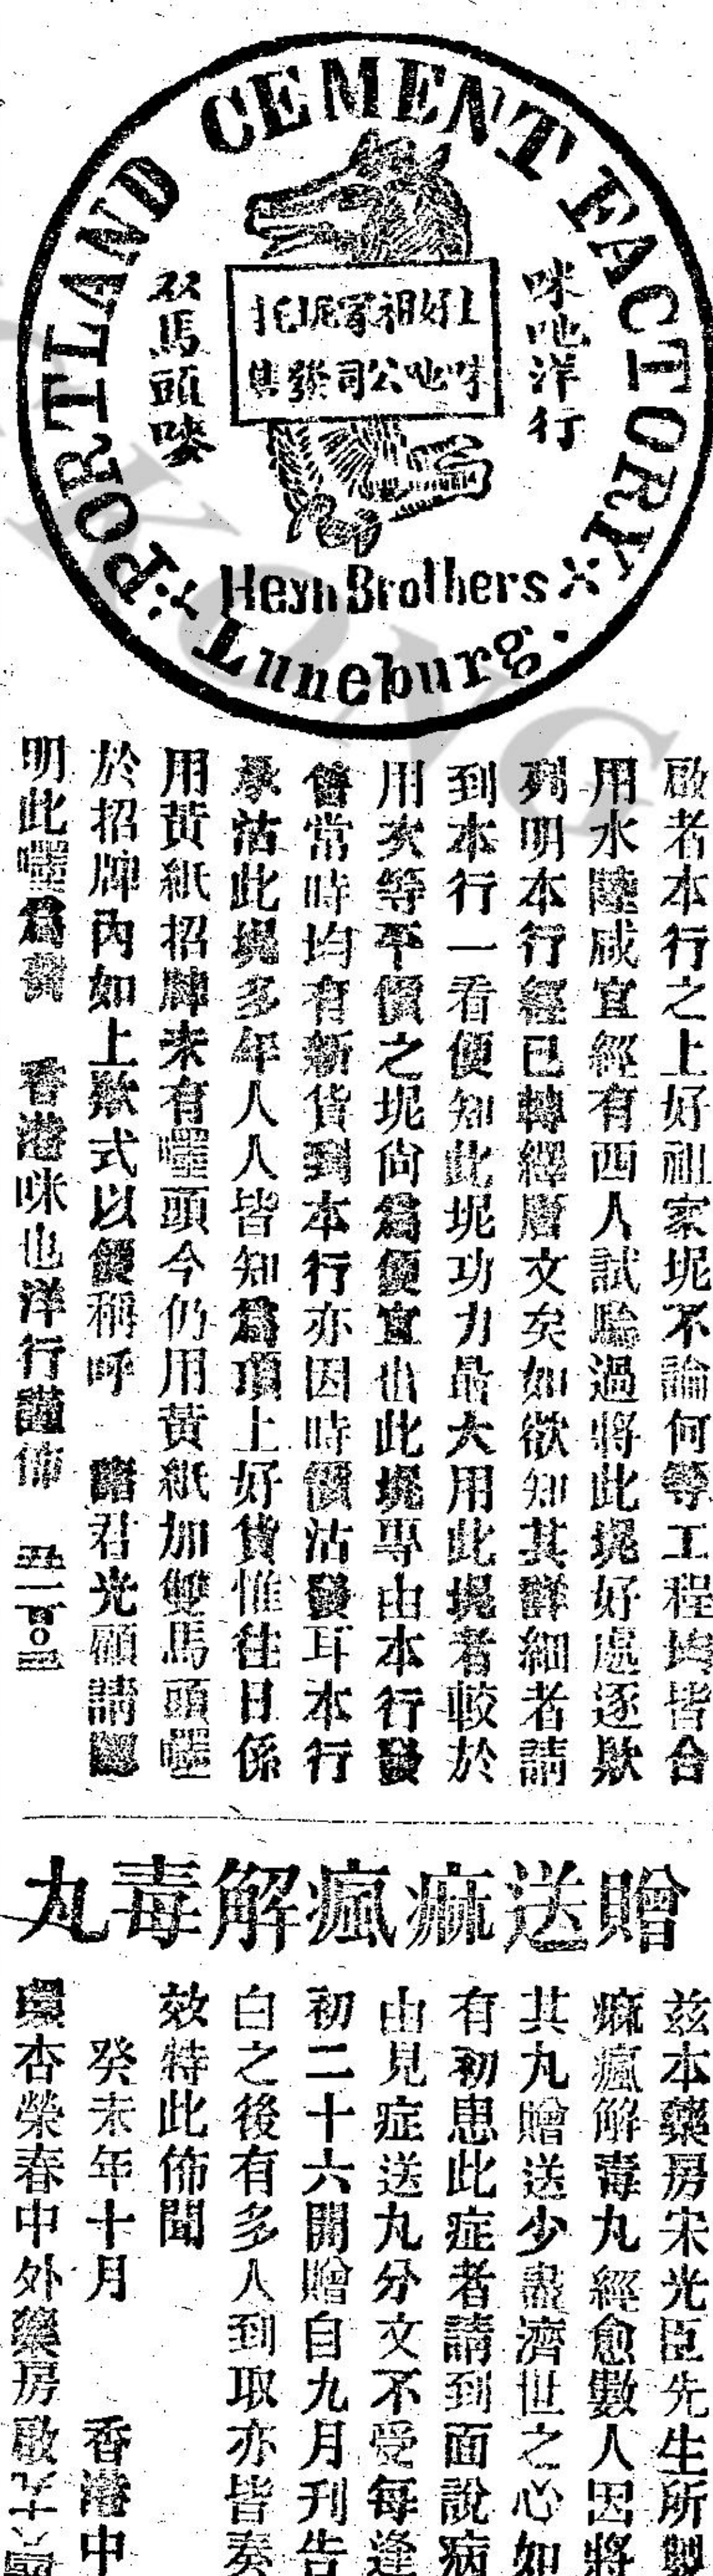 PORTLAND CEMENT FACTORY
双馬頭嘜
上好祖家坭托
咪吔公司發售
咪吔洋行
Heyn Brothers
Luneburg.
啟者本行之上好祖家坭不論何等工程均皆合
用水陸咸宜經有西人試驗過將此坭好處逐欵
列明本行經已轉繹唐文矣如欲知其詳細者請
到本行一看便知此坭功力最大用此坭者較於
用次等平價之坭尙爲便宜也此坭專由本行發
售常時均有新貨到本行亦因時價沽發耳本行
承沽此坭多年人人皆知爲頂上好貨惟往日係
用黃紙招牌未有嚜頭今仍用黃紙加雙馬頭嚜
於招牌內如上欵式以便稱呼 諸君光顧請認
明此嚜爲要 香港咪也洋行謹佈
贈送痲瘋解毒丸
茲本藥房宋光臣先生所製
痲瘋解毒丸經愈數人因將
其丸贈送少盡濟世之心如
有初患此症者請到面說病
由見症送丸分文不受每逢
初二十六開贈自九月刋告
白之後有多人到取亦皆奏
效特此佈聞
癸未年十月 香港中
環杏榮春中外藥房啟